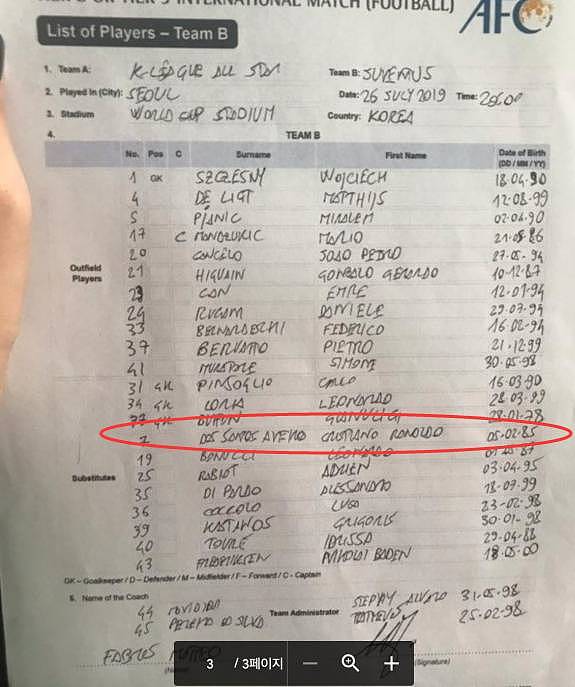 TIER 3 INTERNATIONAL MATCH (FOOTBALL)
AFC
List of Players – Team B
1. Team A: K-LEAGUE ALL STAR Team B: JUVENTUS
2. Played in (City): SEOUL Date: 26 JULY 2019 Time:
3. Stadium WORLD CUP STADIUM Country: KOREA
4. TEAM B
No. Pos C Surname First Name Date of Birth
(DD / MM / YY)
1 GK SZCZESNY WOJCIECH 18.04.90
4 DE LIGT MATTHIJS 12.08.99
5 PJANIC MIRALEM 02.04.90
17 C MANDZUKIC MARIO 21.05.86
20 CANCELO JOAO PEDRO 27.05.94
Outfield
Players
21 HIGUAIN GONZALO GERARDO 10.12.87
23 CAN EMRE 12.01.94
24 RUGANI DANIELE 29.07.94
33 BERNARDESCHI FEDERICO 16.02.94
37 BERUATTO PIETRO 21.12.99
41 MURATORE SIMONE 30.05.98
31 GK PINSOGLIO CARLO 16.03.90
34 GK LORIA LEONARDO 28.03.99
77 GK BUFFON GIANLUIGI 28.01.78
7 DOS SANTOS AVEIRO CRISTIANO RONALDO 05.02.85
19 BONUCCI LEONARDO
Substitutes
25 RABIOT ADRIEN 03.04.95
35 DI PARDO ALESSANDRO 18.07.99
36 COCCOLO LUCA 23-02-98
39 KASTANOS GRIGORIS 30-01-98
40 TOURE IDRISSA 29.04.98
43 FREDERIKSEN NIKOLAI BADEN 18.05.00
GK – Goalkeeper / D – Defender / M – Midfielder / F – Forward / C - Captain
5. Name of the Coach
44 31.05.98
Team Administrator
45 PEREIRA DA SILVA MATHEUS 25.02.98
(Signature)
3 / 3페이지 — +